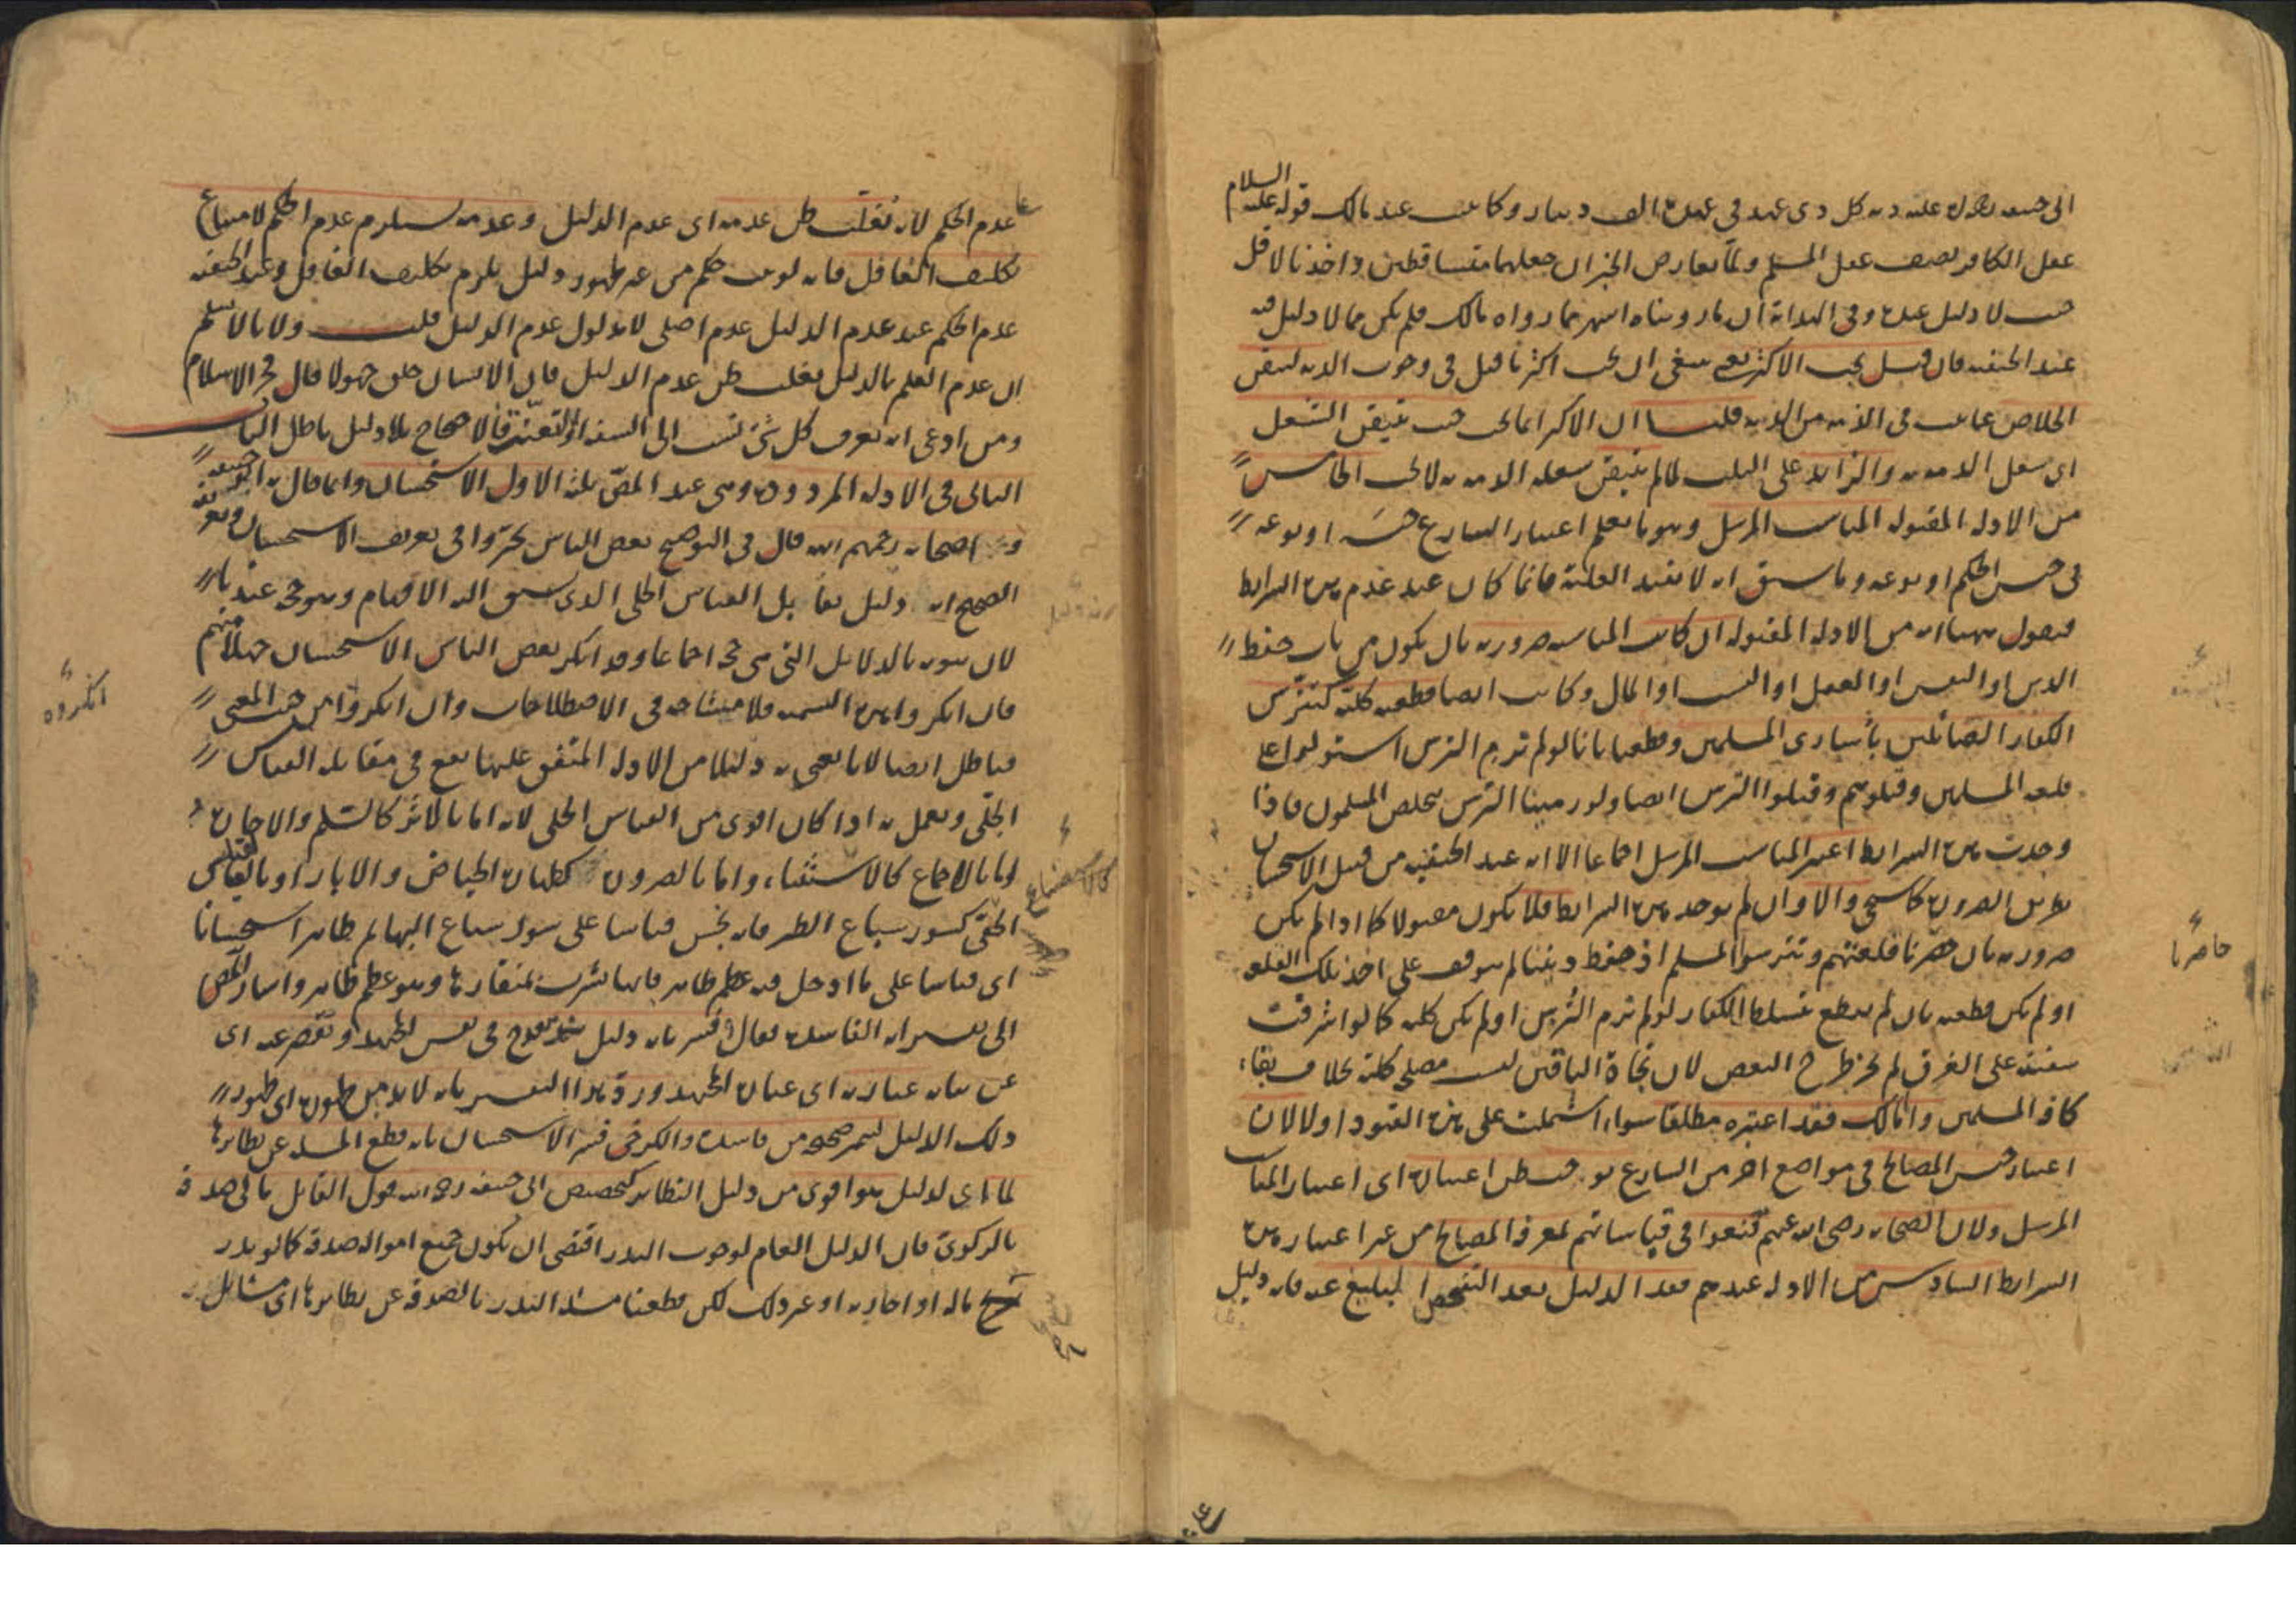 ابى حنيفة لقوله عليه السلام دية كل ذى عهد فى عهده الف دينار وكانت عند مالك قوله عليه السلام
عقل الكافر نصف عقل المسلم ولما تعارض الخبران جعلهما متساقطين واخذنا لاقل
حيث لا دليل عنده وفى الهداية ان ما رويناه اشهر مما رواه مالك فلم يكن مما لا دليل فيه
عند الحنفية فان قيل يجب الاكثر ينبغى ان يجب اكثر ما قيل فى وجوب الدية ليتيقن
الخلاص عما يثبت فى الذمة من الدية قلنا ان الاكثر انما يجب حيث تيقن الشغل
اى شغل الذمة به والزايد على الثلث لما لم يتيقن شغله الذمة به لا يجب الخامس
من الادلة المقبولة المناسب المرسل وهو ما يعلم اعتبار الشارع جنسه او نوعه
فى جنس الحكم او نوعه وما سبق انه لا يفيد العلية فانما كان عند عدم هذه الشرايط
فنقول ههنا انه من الادلة المقبولة ان كانت المناسبة ضرورية بان يكون من باب حفظ
الدين او النفس او العقل او النسب او المال وكانت ايضا قطعية كلية كتترس
الكفار الصائلين باسارى المسلمين وقطعنا بانا لو لم نرم الترس استولوا على
قلعة المسلمين وقتلوهم وقتلوا الترس ايضا ولو رمينا الترس يخلص المسلمون فاذا
وجدت هذه الشرايط اعتبر المناسب المرسل اجماعا الا انه عند الحنفية من قبيل الاستحسان
بدليل الضرورة كما سيجئ والا وان لم يوجد هذه الشرايط فلا يكون مقبولا كما اذا لم يكن
ضرورية بان حصرنا قلعتهم وتترسوا المسلم اذ حفظ ديننا لم يتوقف على اخذ تلك القلعة
حاصرنا
او لم يكن قطعية بان لم يقطع تسلط الكفار لو لم نرم الترس او لم يكن كلية كما لو اشرفت
سفينة على الغرق لم يجز طرح البعض لان نجاة الباقين ليست مصلحة كلية بخلاف بقاء
كافة المسلمين واما مالك فقد اعتبره مطلقا سواء اشتملت على هذه القيود او لا لان
اعتبار جنس المصالح فى مواضع اخر من الشارع يوجب ظن اعتباره اى اعتبار المناسب
المرسل ولان الصحابة رضى الله عنهم قنعوا فى قياساتهم لمعرفة المصالح من غير اعتبار هذه
الشرايط السادس من الادلة عندهم فقد الدليل بعد التفحص البليغ عنه فانه دليل
عدم الحكم لانه تغلب ظن عدمه اى عدم الدليل وعدمه يستلزم عدم الحكم لامتناع
تكليف الغافل فانه لو ثبت حكم من غير ظهور دليل يلزم تكليف الغافل وعند الحنفية
عدم الحكم عند عدم الدليل عدم اصلى لا مدلول عدم الدليل قلت ولانا لا نسلم
ان عدم العلم بالدليل يغلب ظن عدم الدليل فان الانسان خلق جهولا قال فخر الاسلام
ومن ادعى انه يعرف كل شئ نسب الى السفه او التعنت فالاحتجاج بلا دليل باطل الباب
الثانى فى الادلة المردودة وهى عند المص ثلثة الاول الاستحسان وانما قال به ابو حنيفة
واصحابه رحمهم الله قال فى التوضيح بعض الناس تحيروا فى تعريف الاستحسان وتعريفه
الصحيح انه دليل يقابل القياس الجلى الذى يسبق اليه الافهام وهو حجة عندنا
لان ثبوته بالدلايل التى هى حجة اجماعا وقد انكر بعض الناس الاستحسان جهلا منهم
فان انكروا هذه التسمية فلا مشاحة فى الاصطلاحات وان انكروا من حيث المعنى
انكروه
فباطل ايضا لانا نعنى به دليلا من الادلة المتفق عليها يقع فى مقابلة القياس
الجلى ويعمل به اذا كان اقوى من القياس الجلى لانه اما بالاثر كالسلم والاجارة
واما بالاجماع كالاستثناء واما بالضرورة كطهارة الحياض والابار او بالقياس
كالاستصناع
الخفى كسور سباع الطير فانه نجس قياسا على سور سباع البهايم طاهر استحسانا
اى قياسا على ما ادخل فيه عظم طاهر فانها تشرب بمنقارها وهو عظم طاهر واشار المص
الى تفسيراته الفاسدة فقال وفسر بانه دليل ينقدح فى نفس المجتهد وتقصر عنه اى
عن بيانه عبارته اى عبارة المجتهد ورد هذا التفسير بانه لا بد من ظهوره اى ظهور
ذلك الدليل ليتميز صحيحه من فاسده والكرخى فسر الاستحسان بانه قطع المسئلة عن نظايرها
لما اى لدليل هو اقوى من دليل النظاير كتخصيص ابى حنيفة رحمه الله قول القايل مالى صدقة
بالزكوى فان الدليل العام لوجوب النذر اقتضى ان يكون جميع امواله صدقة كما لو نذر
ماله او اجازته او غير ذلك لكن قطعنا مسئلة النذر بالصدقة عن نظايرها اى مسايل